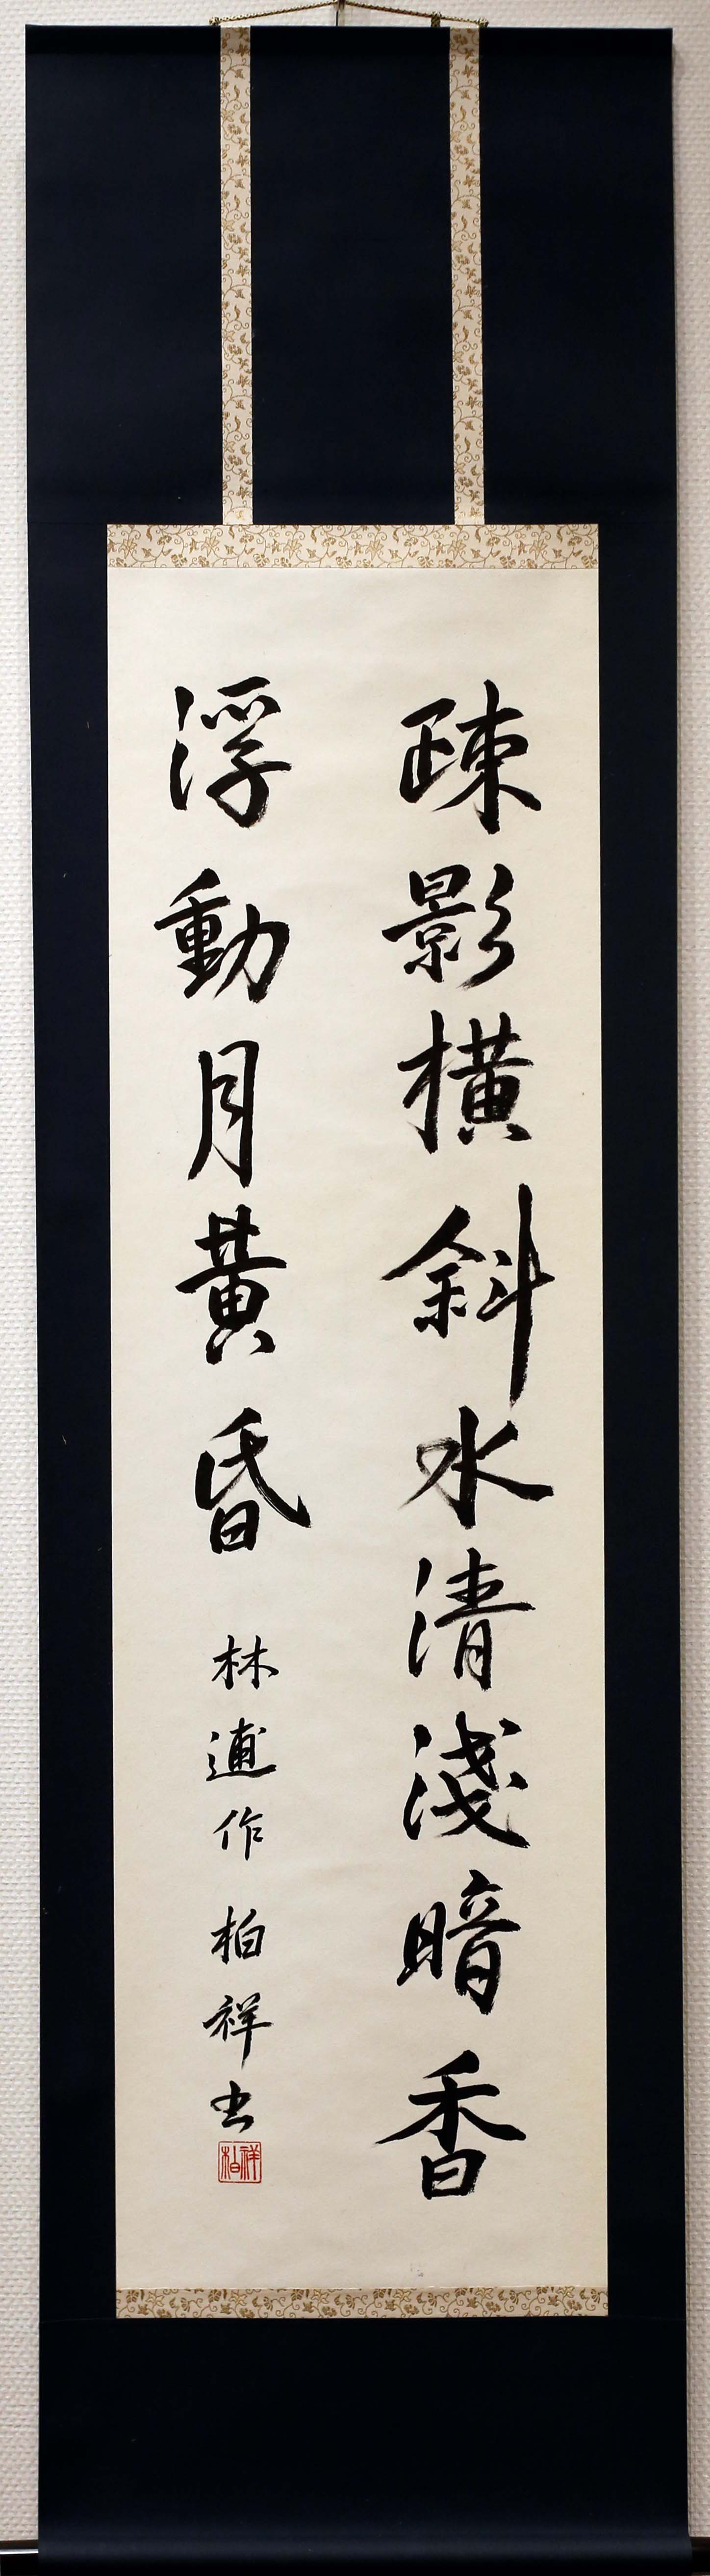 疎影橫斜水清淺暗香
浮動月黃昏 林逋作 柏祥書
柏祥